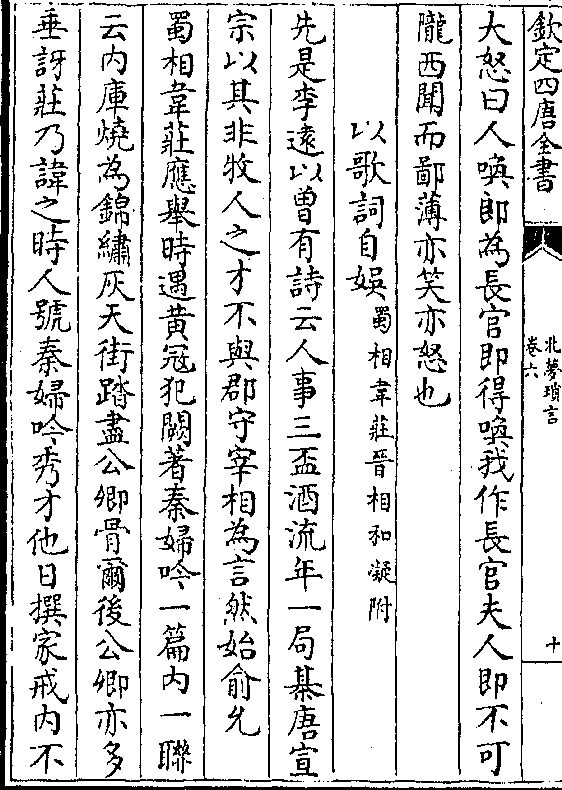 欽定四唐全書
北夢瑣言
卷六
十
大怒曰人喚即為長官即得喚我作長官夫人即不可
隴西聞而鄙薄亦笑亦怒也
以歌詞自娛蜀相韋莊晉相和凝附
先是李遠以曾有詩云人事三盃酒流年一局棊唐宣
宗以其非牧人之才不與郡守宰相為言然始俞允
蜀相韋莊應舉時遇黄冠犯闕著秦婦吟一篇内一聯
云内庫燒為錦繡灰天街踏盡公卿骨爾後公卿亦多
垂訝莊乃諱之時人號秦婦吟秀才他日撰家戒内不